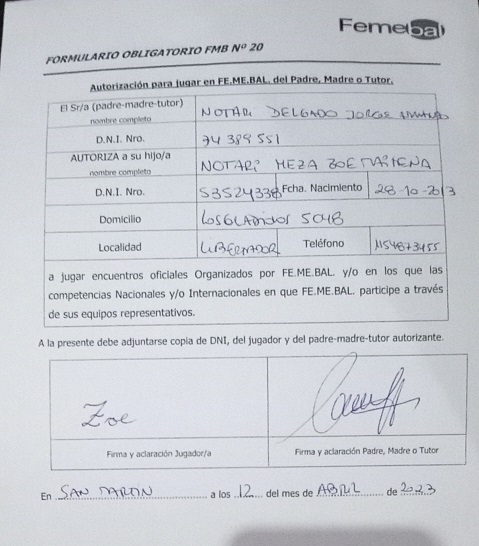 Femebal
FORMULARIO OBLIGATORIO FMB Nº 20
Autorización para jugar en FE.ME.BAL. del Padre, Madre o Tutor.
El Sr/a (padre-madre-tutor) NOTARI DELGADO JORGE
nombre completo
D.N.I. Nro. 94389551
AUTORIZA a su hijo/a NOTARI MEZA ZOE
nombre completo
D.N.I. Nro. 53524338 Fcha. Nacimiento 28-10-2013
Domicilio 5048
Localidad LIBERTADOR Teléfono 1154873455
a jugar encuentros oficiales Organizados por FE.ME.BAL. y/o en los que las
competencias Nacionales y/o Internacionales en que FE.ME.BAL. participe a través
de sus equipos representativos.
A la presente debe adjuntarse copia de DNI, del jugador y del padre-madre-tutor autorizante.
Zoe
Firma y aclaración Jugador/a Firma y aclaración Padre, Madre o Tutor
En SAN MARTIN a los 12 del mes de ABRIL de 2023